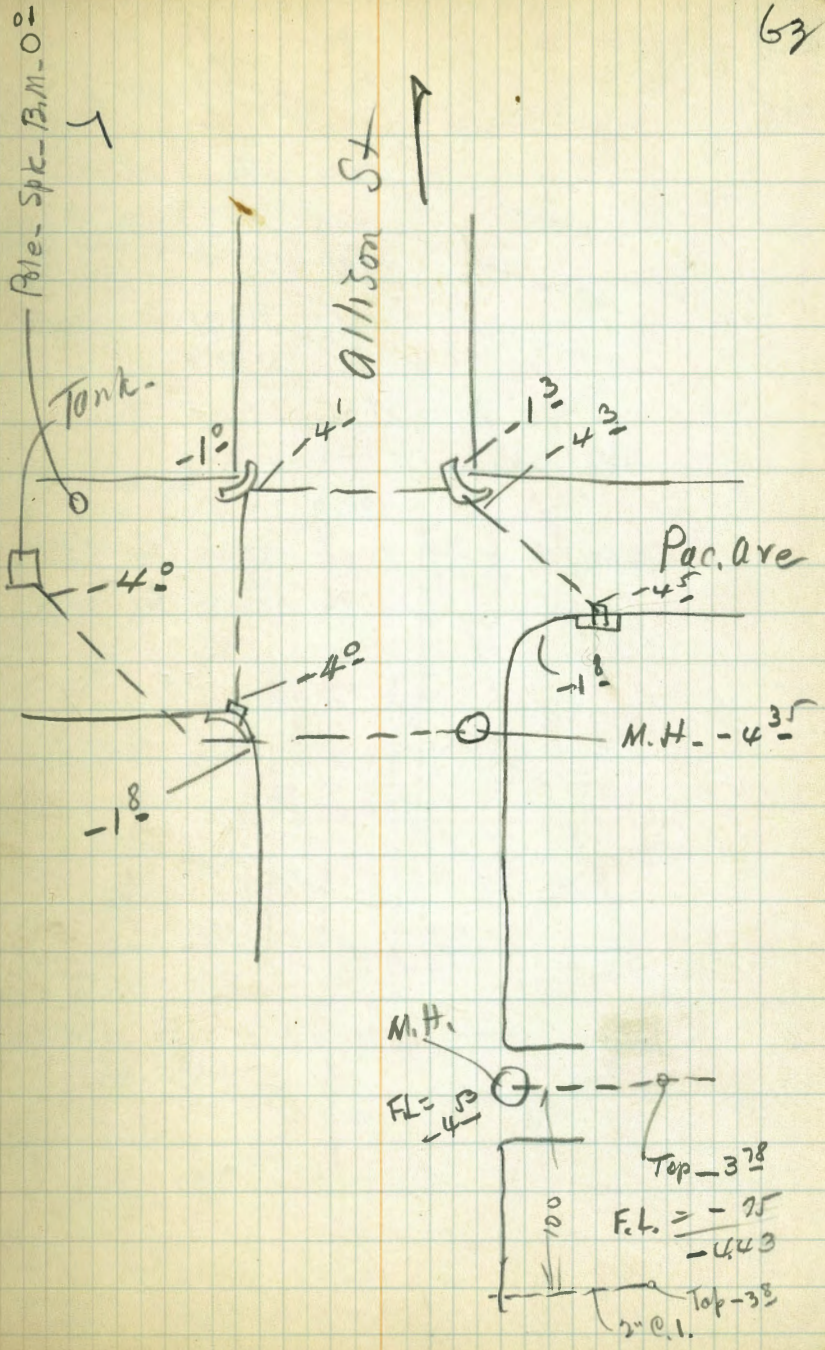 63
Pole - Spk - B.M. - 0º
Allison St
Tank.
-1º
-4¹
-1³
-4³
Pac. Ave
-4⁵
-1⁸
-4º
-4º
M.H. - -4³⁵
-1⁸
M.H.
F.L = -4⁵³
Top - 3⁷⁸
100
F.L. = - 75
-4.43
Top - 3⁸
2" C.I.